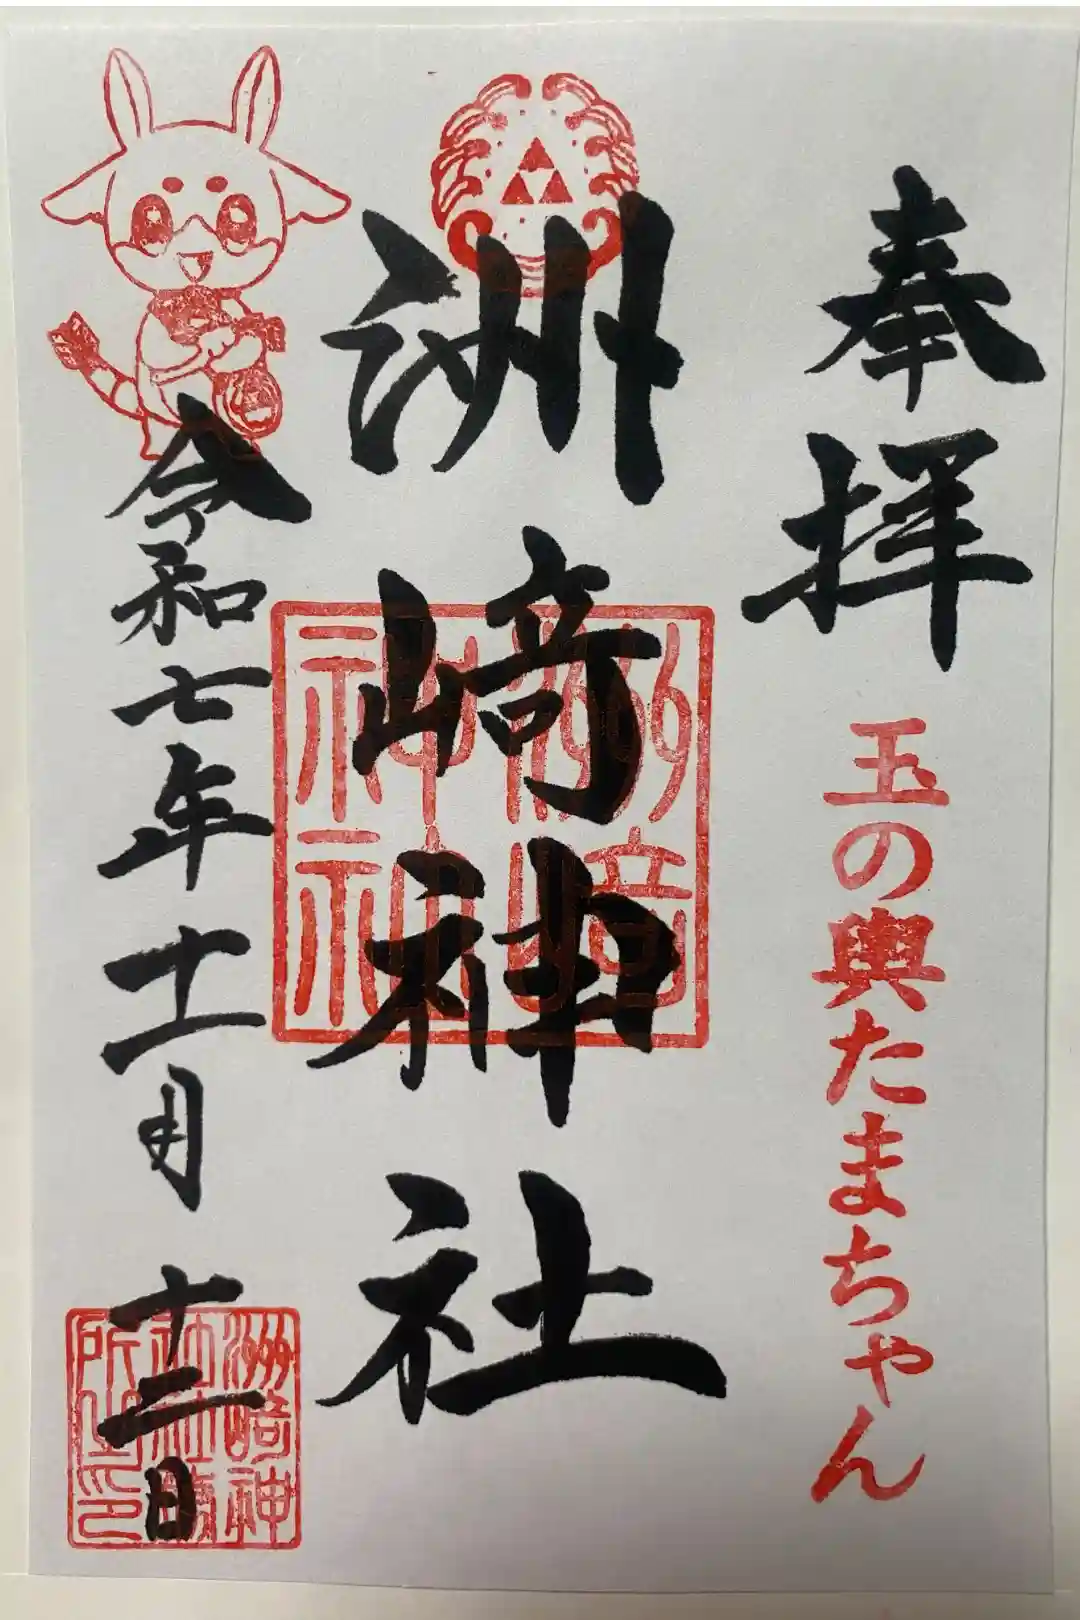 奉拝
玉の輿たまちゃん
洲崎神社
洲崎神社
令和七年十一月十二日
洲崎神社社務所之印